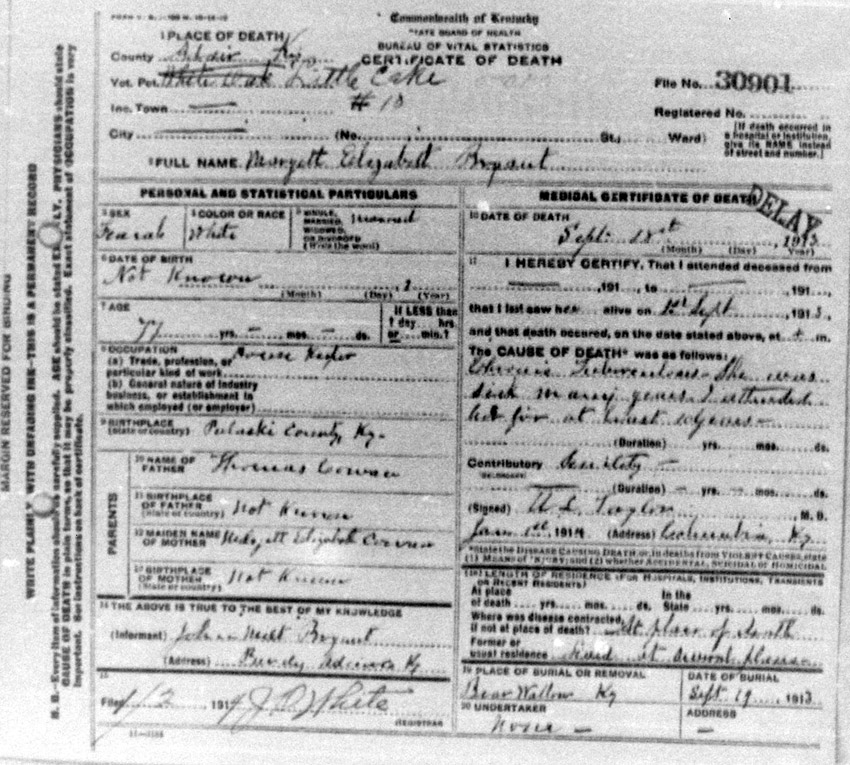 Commonwealth of Kentucky
STATE BOARD OF HEALTH
BUREAU OF VITAL STATISTICS
CERTIFICATE OF DEATH
1 PLACE OF DEATH
County Adair Ky
Vot. Pct. White Oak Little Cake
# 18
Inc. Town
City (No. St.; Ward)
File No. 30901
Registered No.
[If death occurred in a hospital or institution, give its NAME instead of street and number.]
2 FULL NAME Margett Elizabeth Bryant
PERSONAL AND STATISTICAL PARTICULARS
3 SEX
Female
4 COLOR OR RACE
White
5 SINGLE, MARRIED, WIDOWED, OR DIVORCED (Write the word)
6 DATE OF BIRTH
Not Known, 1
(Month) (Day) (Year)
7 AGE
77 yrs. – mos. – ds.
If LESS than 1 day, hrs. or min.?
8 OCCUPATION
(a) Trade, profession, or particular kind of work House Keeper
(b) General nature of industry business, or establishment in which employed (or employer)
9 BIRTHPLACE
(State or country) Pulaski County, Ky.
PARENTS
10 NAME OF FATHER Thomas Cowan
11 BIRTHPLACE OF FATHER (State or country) Not Known
12 MAIDEN NAME OF MOTHER Elizabeth Cowan
13 BIRTHPLACE OF MOTHER (State or country) Not Known
14 THE ABOVE IS TRUE TO THE BEST OF MY KNOWLEDGE
(Informant) John Bryant
(Address) Ky
15
Filed 1/2, 1914 White
REGISTRAR
MEDICAL CERTIFICATE OF DEATH
DELAY
16 DATE OF DEATH
Sept. 18st, 1913
(Month) (Day) (Year)
17 I HEREBY CERTIFY, That I attended deceased from
, 191, to , 191,
that I last saw her alive on Sept, 1913,
and that death occured, on the date stated above, at m.
The CAUSE OF DEATH* was as follows:
Chronic Tuberculosis She was
sick many years I attended
her for at least 10 years –
(Duration) yrs. mos. ds.
Contributory Senility –
(Duration) – yrs. – mos. – ds.
(Signed) U. L. Taylor, M. D.
Jan 1st, 1914 (Address) Columbia, Ky
*State the DISEASE CAUSING DEATH, or, in deaths from VIOLENT CAUSES, state (1) MEANS OF INJURY; and (2) whether ACCIDENTAL, SUICIDAL or HOMICIDAL
18 LENGTH OF RESIDENCE (FOR HOSPITALS, INSTITUTIONS, TRANSIENTS OR RECENT RESIDENTS)
At place of death yrs. mos. ds. In the State yrs. mos. ds.
Where was disease contracted, if not at place of death? At place of death
Former or usual residence lived at different places
19 PLACE OF BURIAL OR REMOVAL
Bear Wallow Ky
DATE OF BURIAL
Sept 19, 1913
20 UNDERTAKER
None –
ADDRESS
–
MARGIN RESERVED FOR BINDING
WRITE PLAINLY WITH UNFADING INK—THIS IS A PERMANENT RECORD
N. B.—Every item of information should be carefully supplied. AGE should be stated EXACTLY. PHYSICIANS should state
CAUSE OF DEATH in plain terms, so that it may be properly classified. Exact statement of OCCUPATION is very
important. See instructions on back of certificate.